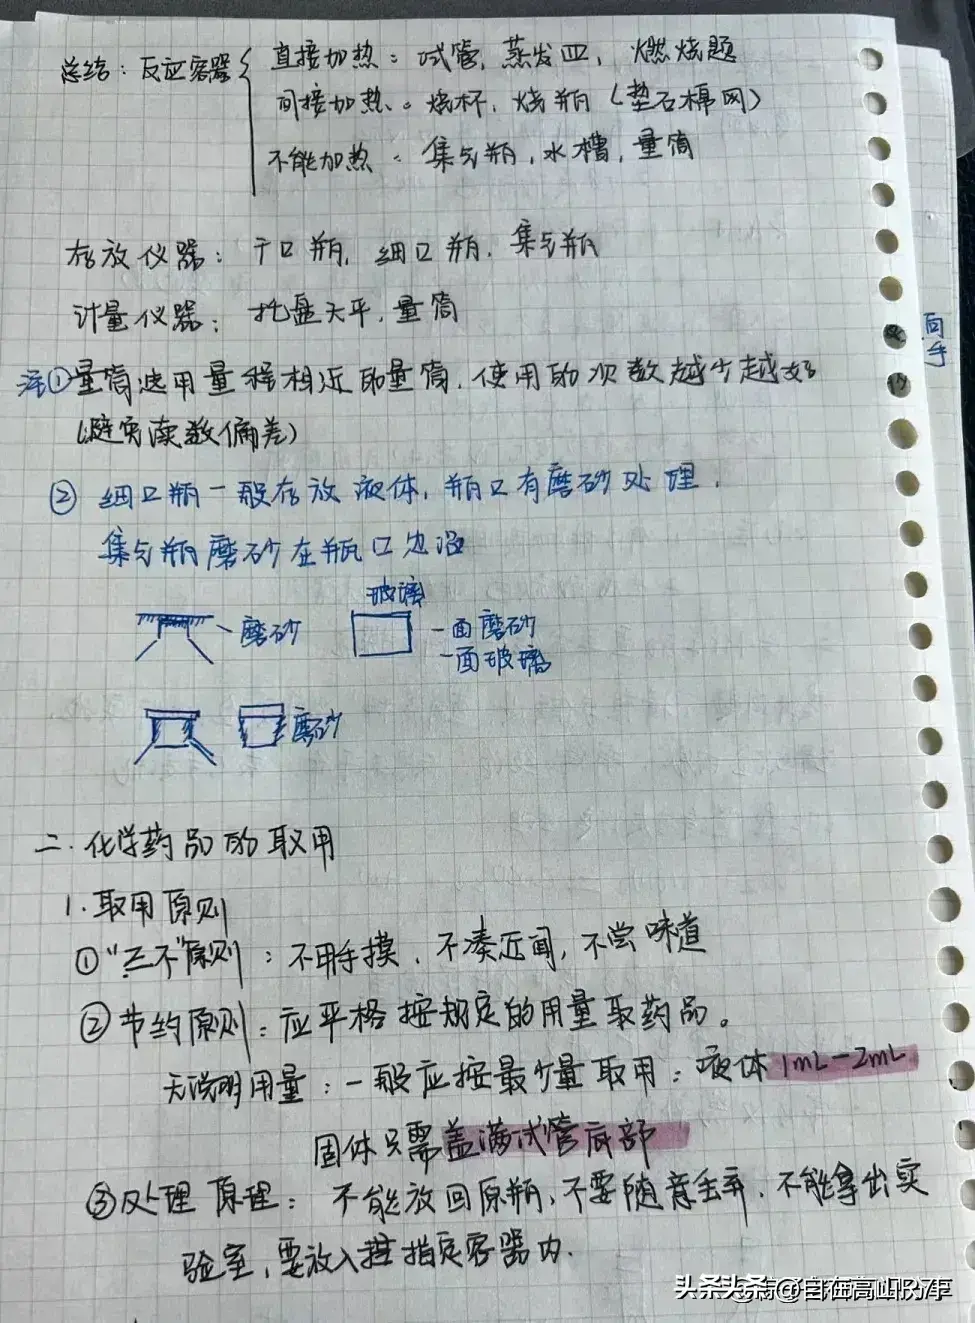 总结：反应容器
直接加热：试管，蒸发皿，燃烧题
间接加热：烧杯，烧瓶（垫石棉网）
不能加热：集气瓶，水槽，量筒
存放仪器：干口瓶，细口瓶，集气瓶
计量仪器：托盘天平，量筒
注①量筒选用量程相近的量筒，使用的次数越少越好
(避免读数偏差)
② 细口瓶一般存放液体，瓶口有磨砂处理，
集气瓶磨砂在瓶口边沿
玻璃
磨砂
一面磨砂
一面玻璃
磨砂
二．化学药品的取用
1．取用原则
①“三不”原则：不用手摸，不凑近闻，不尝味道
②节约原则：应平格按规定的用量取药品。
无说明用量：一般应按最少量取用：液体1mL-2mL
固体只需盖满试管底部
③处理原理：不能放回原瓶，不要随意丢弃，不能拿出实
验室，要放入指定容器内．
同
手
头条头条@自在高山